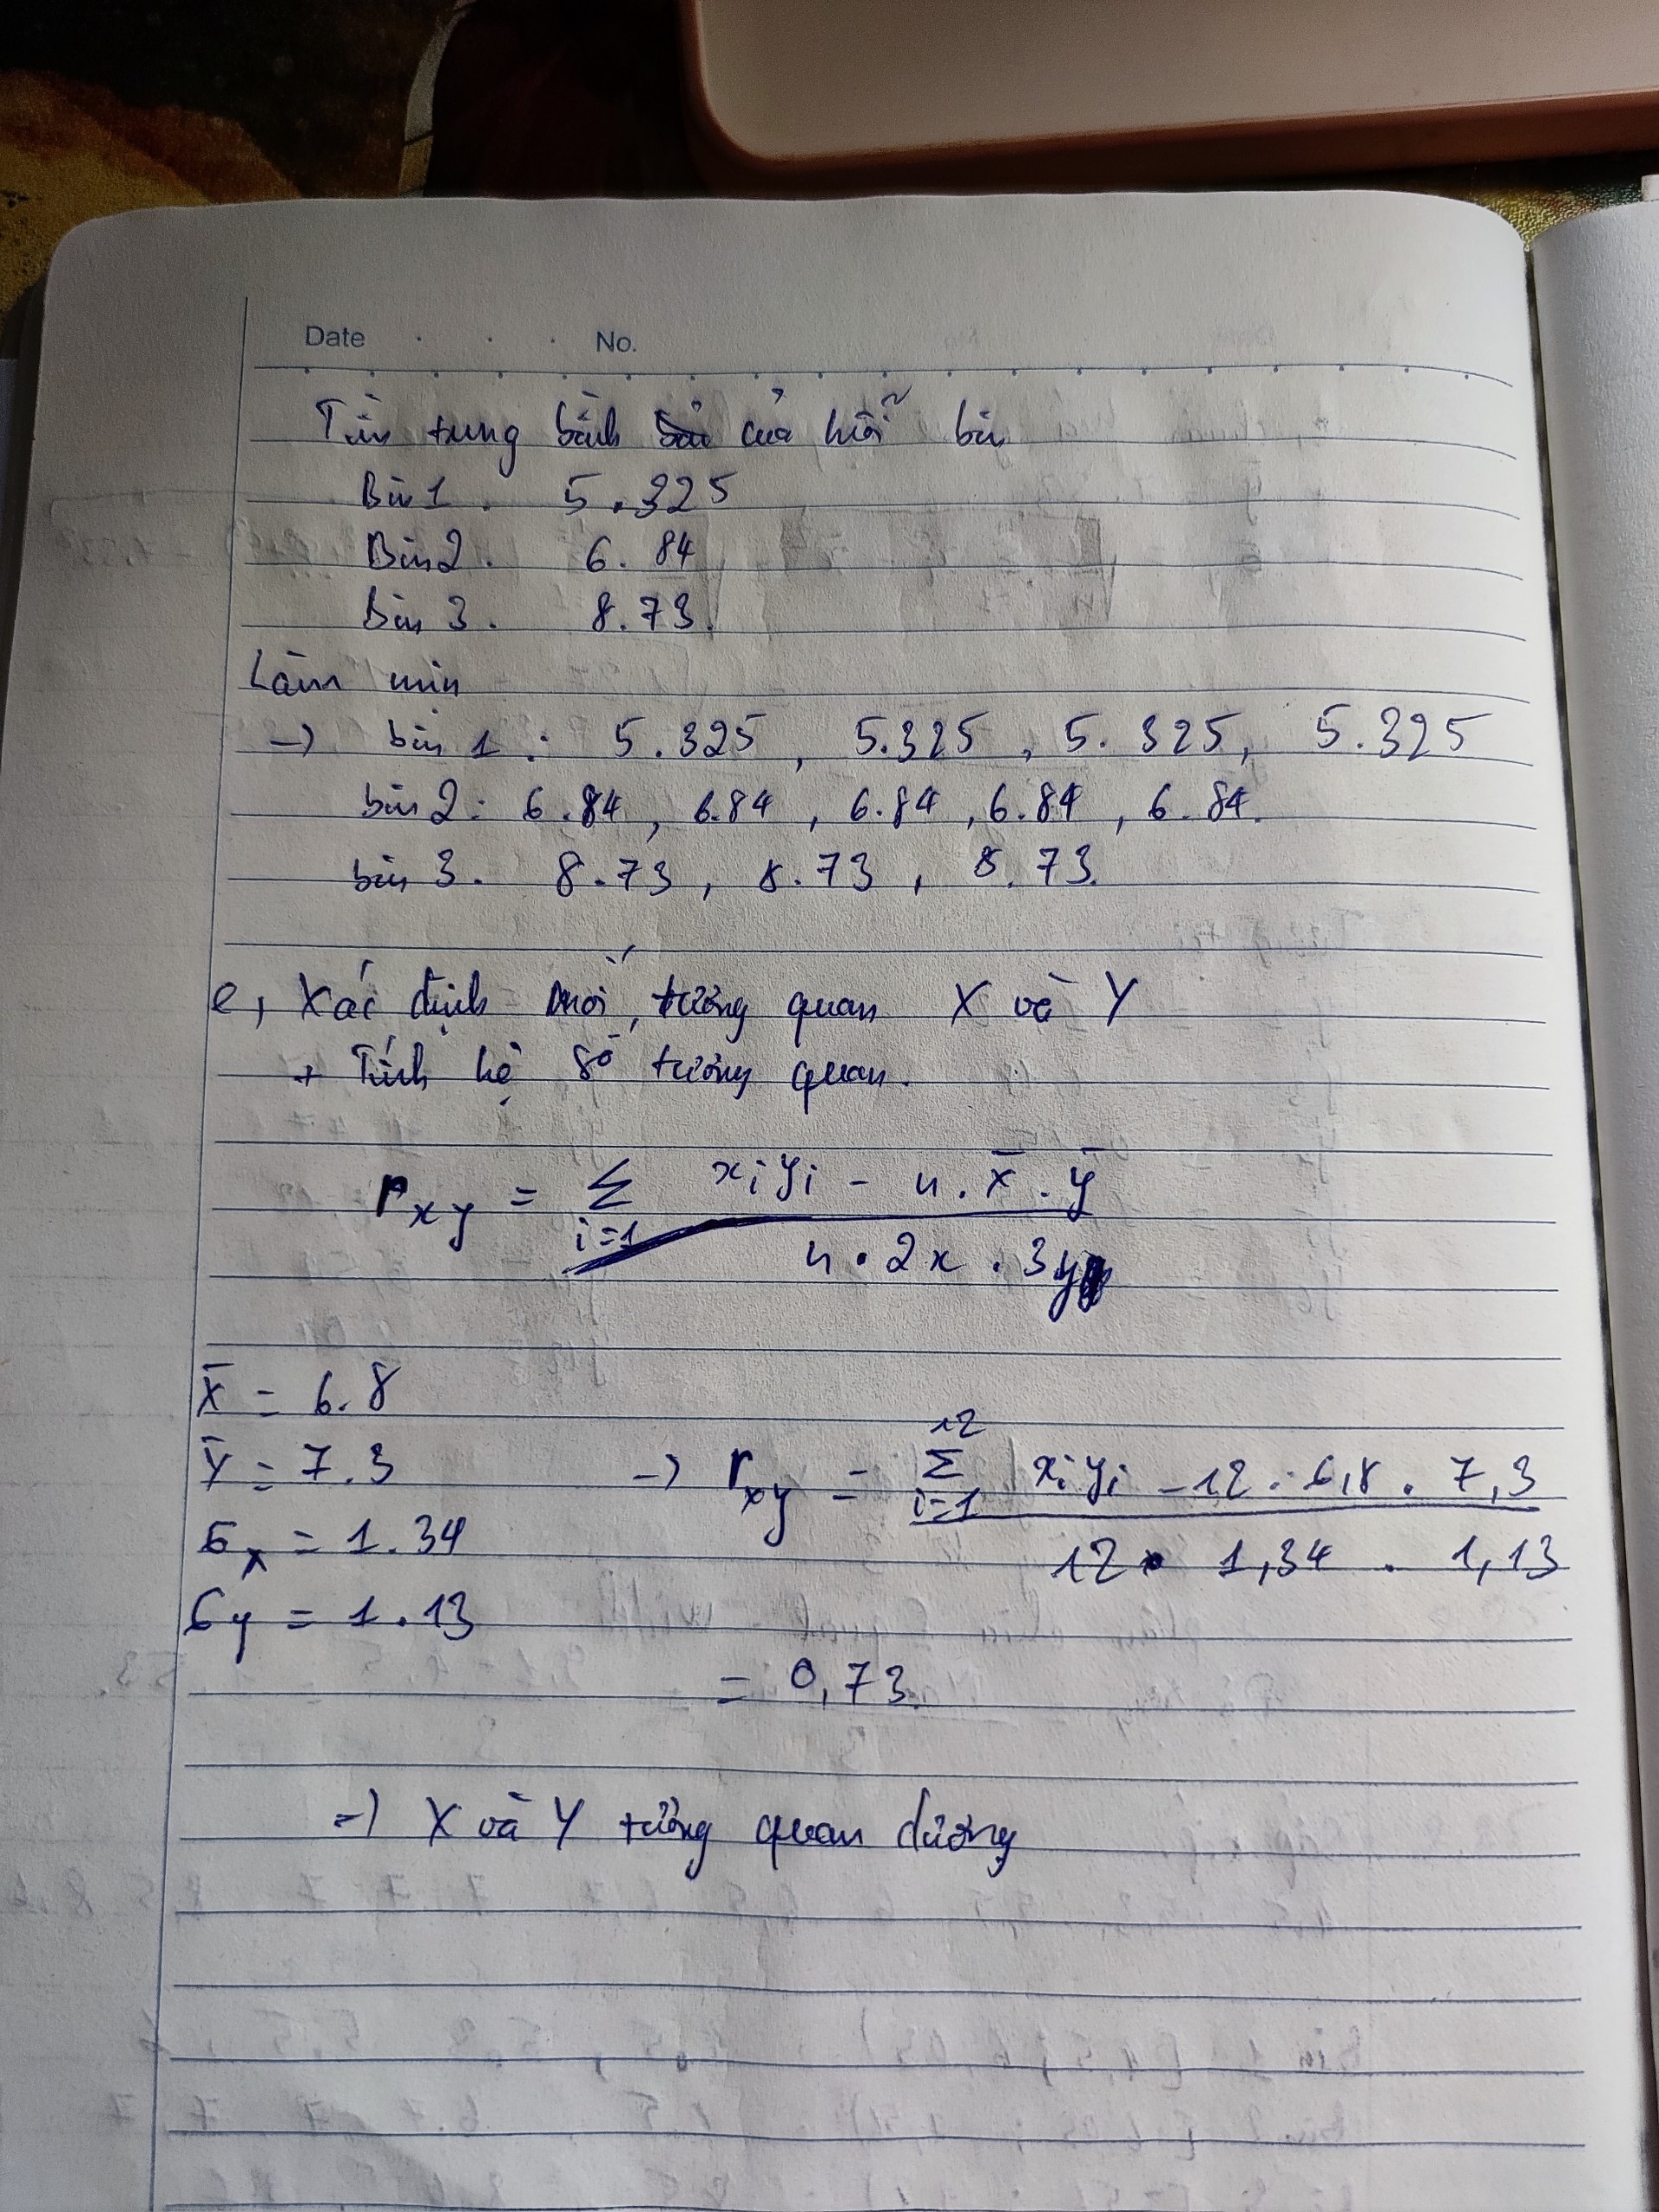 Date No.
Tìm trung bình của mỗi bin
Bin 1. 5.325
Bin 2. 6.84
Bin 3. 8.73.
Làm mịn
→ bin 1: 5.325, 5.325, 5.325, 5.325
bin 2: 6.84, 6.84, 6.84, 6.84, 6.84.
bin 3. 8.73, 8.73, 8.73.
e, Xác định mối tương quan X và Y
+ Tính hệ số tương quan.
r_xy = Σ_{i=1} x_i y_i - n . x̄ . ȳ
n . 2x . 3y
X̄ = 6.8
Ȳ = 7.3 → r_xy = Σ_{i=1}^{12} x_i y_i - 12 . 6,8 . 7,3
12 . 1,34 . 1,13
σ_x = 1.34
σ_y = 1.13
= 0,73.
⇒ X và Y tương quan dương